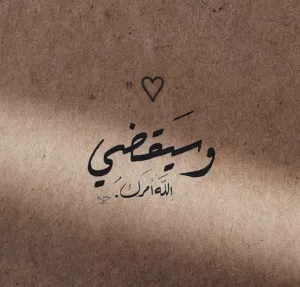 "
وسَيَقضي
اللَّه أمرَك.